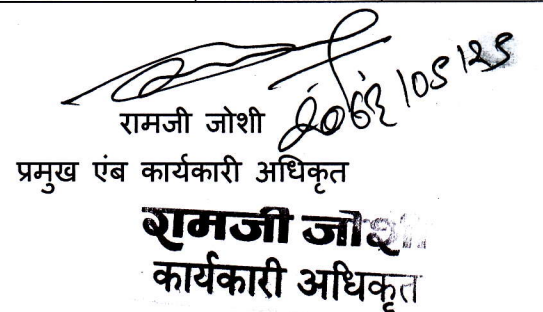 रामजी जोशी
प्रमुख एंब कार्यकारी अधिकृत
रामजी जोशी
कार्यकारी अधिकृत